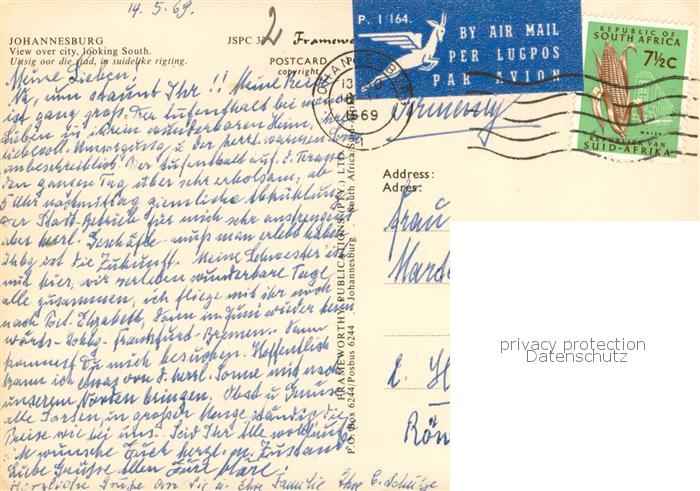 14. 5. 69.
JOHANNESBURG
JSPC 32
Framewo
View over city, looking South.
Uitsig oor die stad, in suidelike rigting.
POSTCARD
copyright
P. 1/164.
BY AIR MAIL
PER LUGPOS
PAR AVION
REPUBLIC OF
SOUTH AFRICA
7½c
MAIZE
REPUBLIEK VAN
SUID-AFRIKA
JOHANNESBURG
13
1969
Germany
Meine Lieben,
Na, nun staunt Ihr!! Meine Freude
ist ganz groß. Der Aufenthalt bei meinen
Lieben in ihrem wunderbaren Heim, ihre
liebevoll. Umsorgung u. der herrl. warmen Sonne
unbeschreiblich. Der Aufenthalt auf d. Terasse
den ganzen Tag über sehr erholsam, ab
5 Uhr nachmittag ziemliche Abkühlung.
Der Stadt-Betrieb für mich sehr anstrengend
aber herrl. Geschäfte muß man erlebt haben
Jhbg ist die Zukunft. Meine Schwester ist
mit hier, wir verleben wunderbare Tage
alle zusammen, ich fliege mit ihr noch
nach Port. Elizabeth, dann im Juni wieder heim
wärts - Frankfurt - Bremen. Dann
kommst Du mich besuchen. Hoffentlich
kann ich etwas von d. herrl. Sonne mit nach
unserem Norden bringen. Obst u. Gemüse
alle Sorten in großer Menge ständig die
Preise wie bei uns. Seid Ihr Alle wohlauf
wünsche Euch herzl. m. Zustand
Liebe Grüße Allen Eure Kläre!
Herzliche Grüße an Sie u. Ihre Familie Ihre E. Schulze
FRAMEWORTHY PUBLICATIONS (PTY.) LTD.
P.O. Box 6244/Posbus 6244 Johannesburg South Africa/Suid-
Address:
Adres:
Frau
privacy protection
Datenschutz